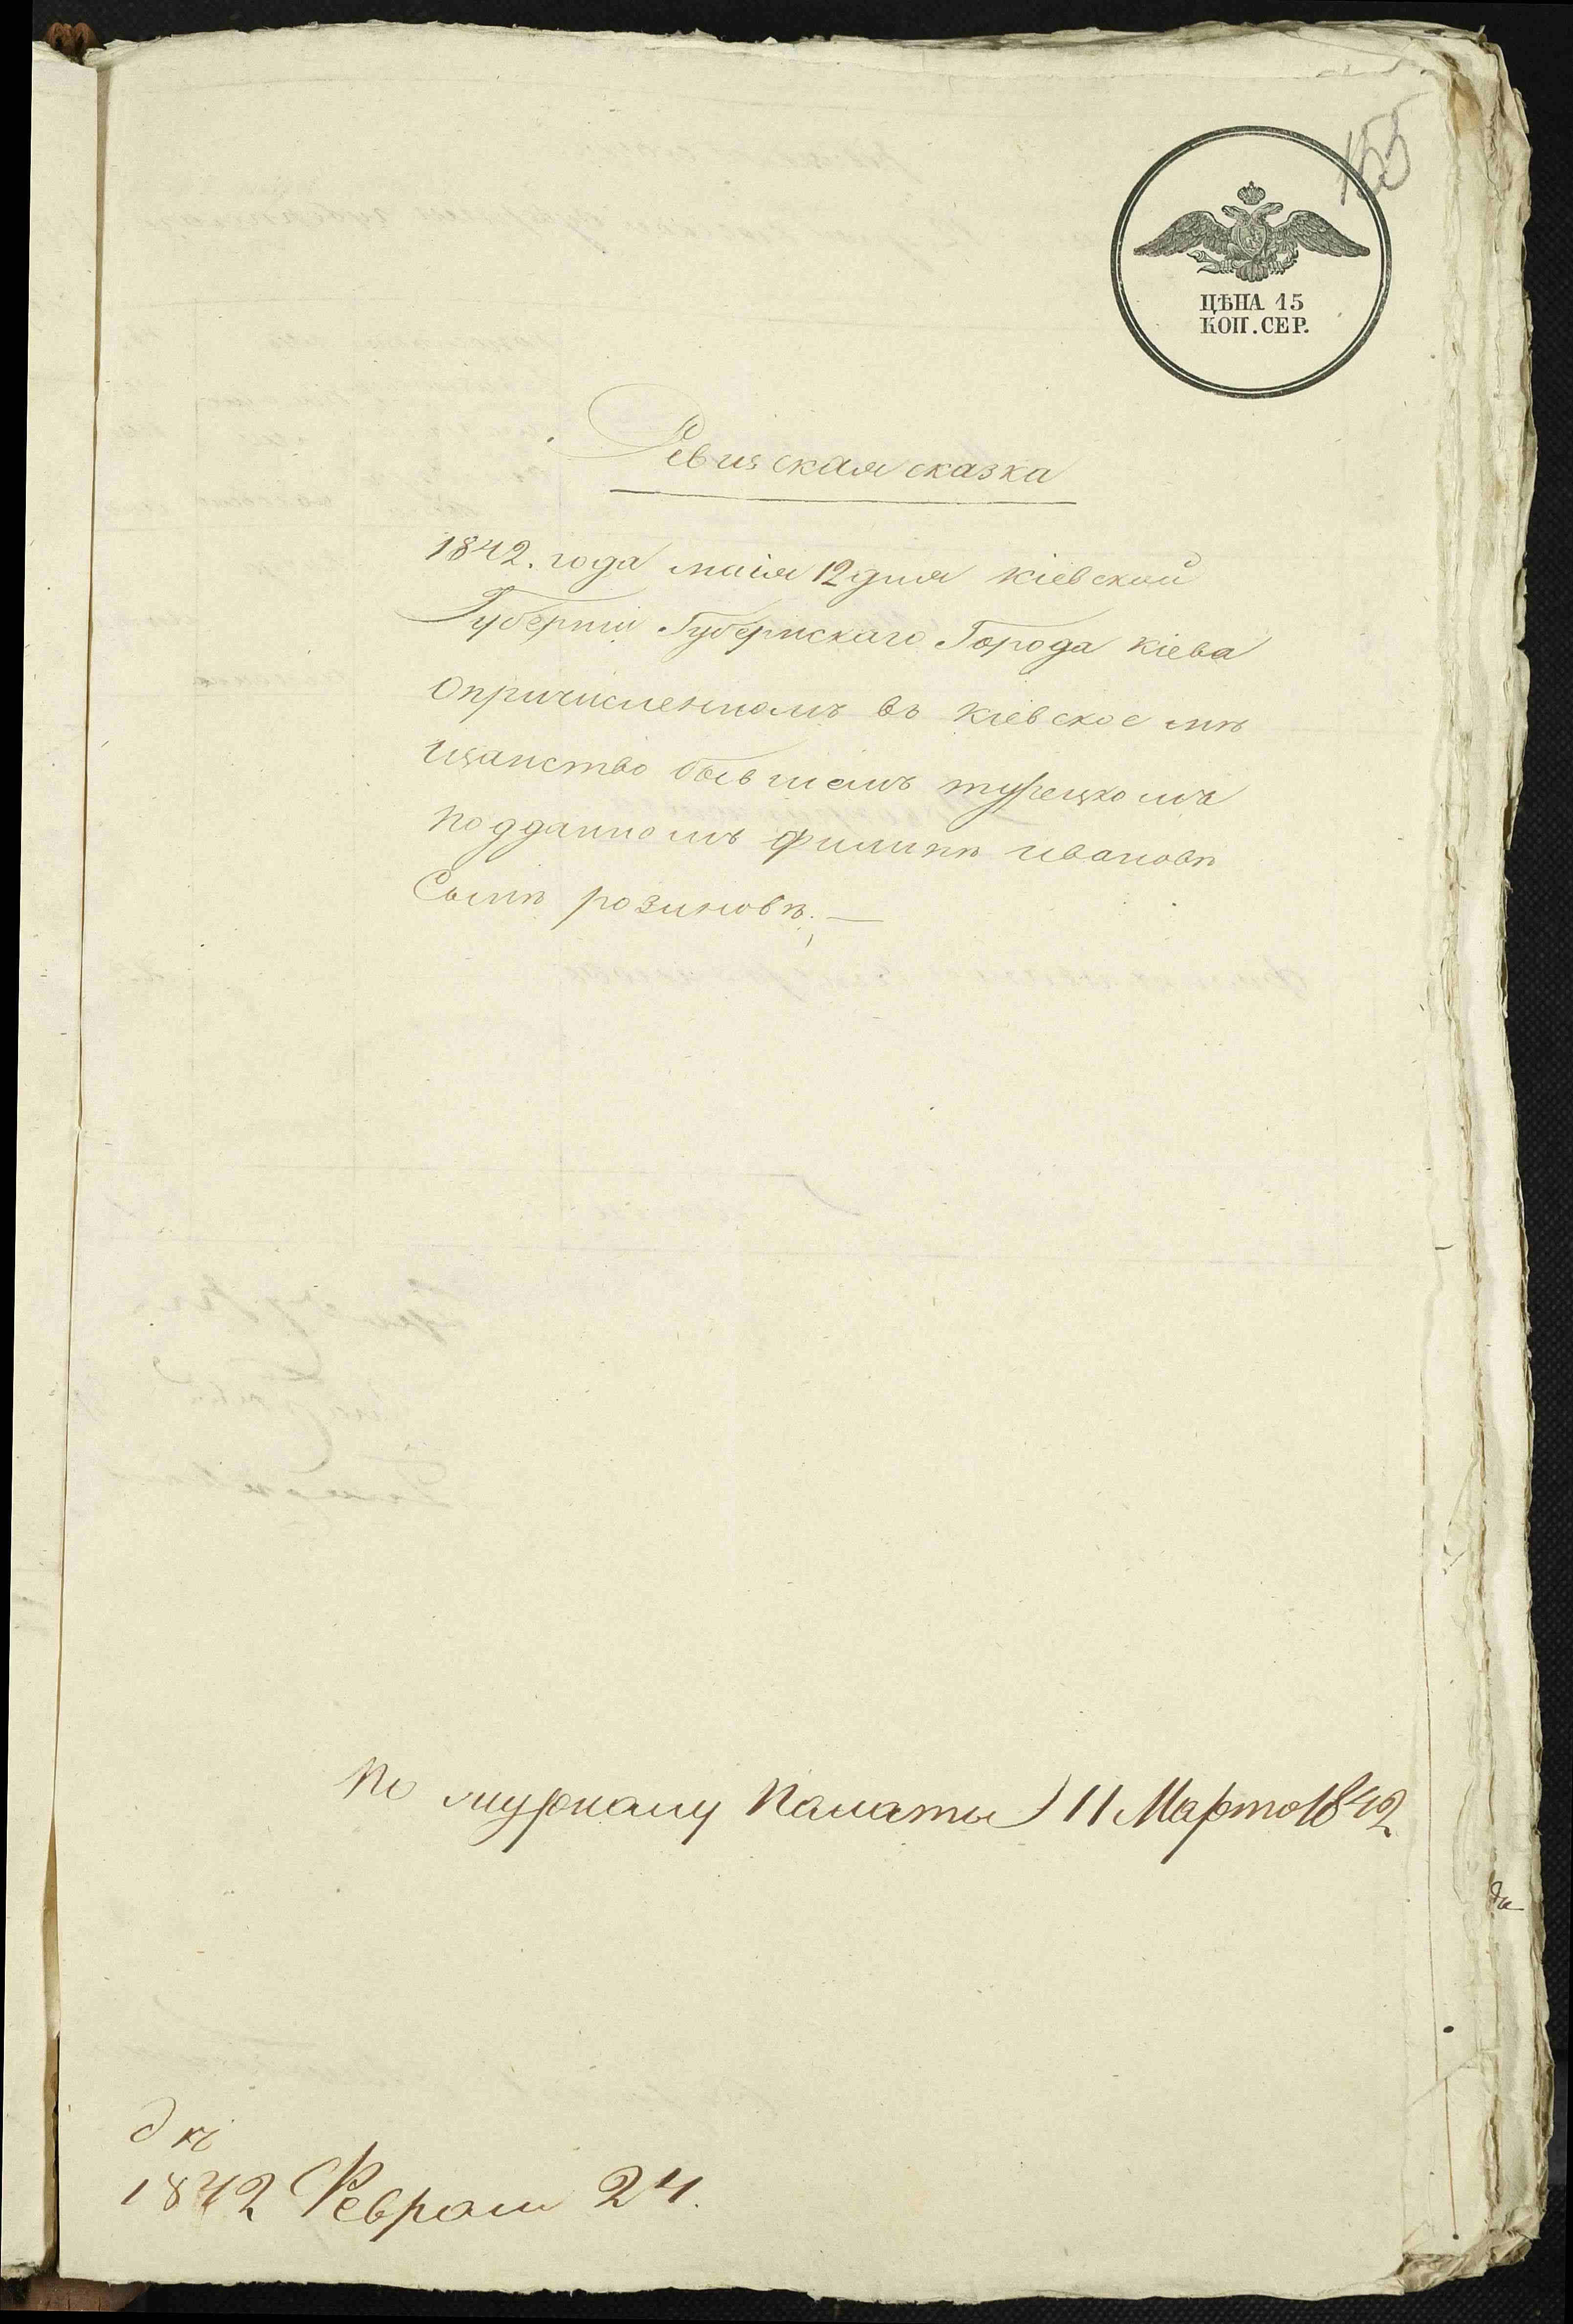 155
ЦѢНА 15
КОП. СЕР.
Ревизская сказка
1842. года маія 12 дня кіевской
Губерніи Губернскаго Города кіева
опричисленномъ въ кіевское мѣ
щанство бывшемъ турецкомъ
подданномъ филипѣ ивановѣ
Сынѣ розиновѣ. —
По журналу Палаты 11 Марта 1842
1842 Февраля 24.